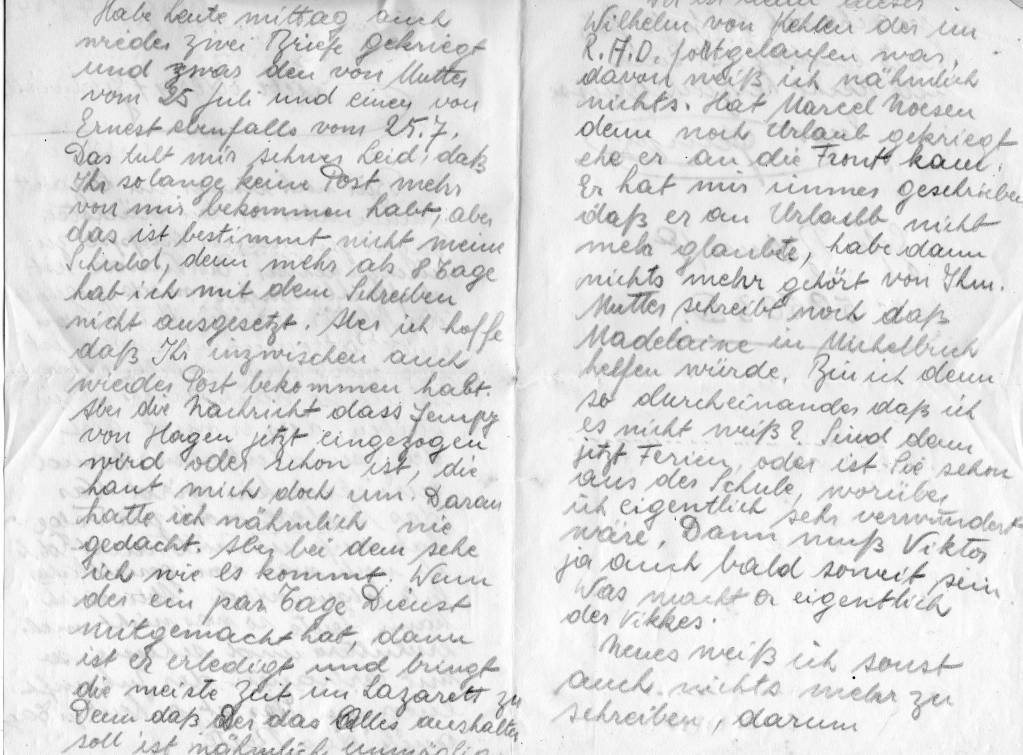 Habe heute mittag auch
wieder zwei Briefe gekriegt
und zwar den von Mutter
vom 25 Juli und einen von
Ernest ebenfalls vom 25.7.
Das tut mir schwer Leid, daß
Ihr solange keine Post mehr
von mir bekommen habt, aber
das ist bestimmt nicht meine
Schuld, denn mehr als 8 Tage
hab ich mit dem Schreiben
nicht ausgesetzt. Aber ich hoffe
daß Ihr inzwischen auch
wieder Post bekommen habt.
Aber die Nachricht dass Jempy
von Hagen jetzt eingezogen
wird oder schon ist, die
haut mich doch um. Daran
hatte ich nähmlich nie
gedacht. Aber bei dem sehe
ich wie es kommt. Wenn
der ein paar Tage Dienst
mitgemacht hat, dann
ist er erledigt und bringt
die meiste Zeit im Lazarett zu
Denn daß Der das Alles aushalten
soll ist nähmlich
dieser
Wilhelm von Kehlen der im
R.A.D. fortgelaufen war,
davon weiß ich nähmlich
nichts. Hat Marcel Noesen
denn noch Urlaub gekriegt
ehe er an die Front kam.
Er hat mir immer geschrieben
daß er an Urlaub nicht
mehr glaubte, habe dann
nichts mehr gehört von Ihm.
Mutter schreibt noch daß
Madelaine in Michelbuch
helfen würde. Bin ich denn
so durcheinander daß ich
es nicht weiß? Sind dann
jetzt Ferien, oder ist Sie schon
aus der Schule, worüber
ich eigentlich sehr verwundert
wäre, Dann muß Viktor
ja auch bald soweit sein.
Was macht er eigentlich
der Vikkes.
Neues weiß ich sonst
auch nichts mehr zu
schreiben, darum